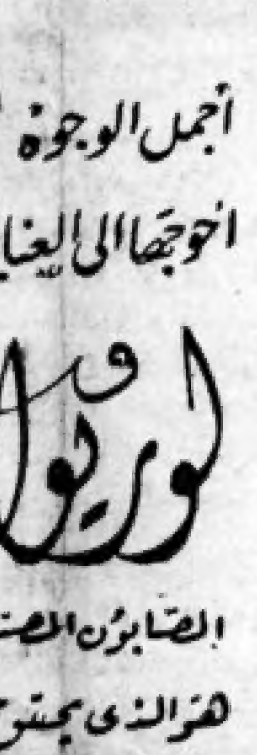 أجمل الوجوة
احوجها الى العنا
لوريوا
الصابون المصنـ
هو الذى يحتو